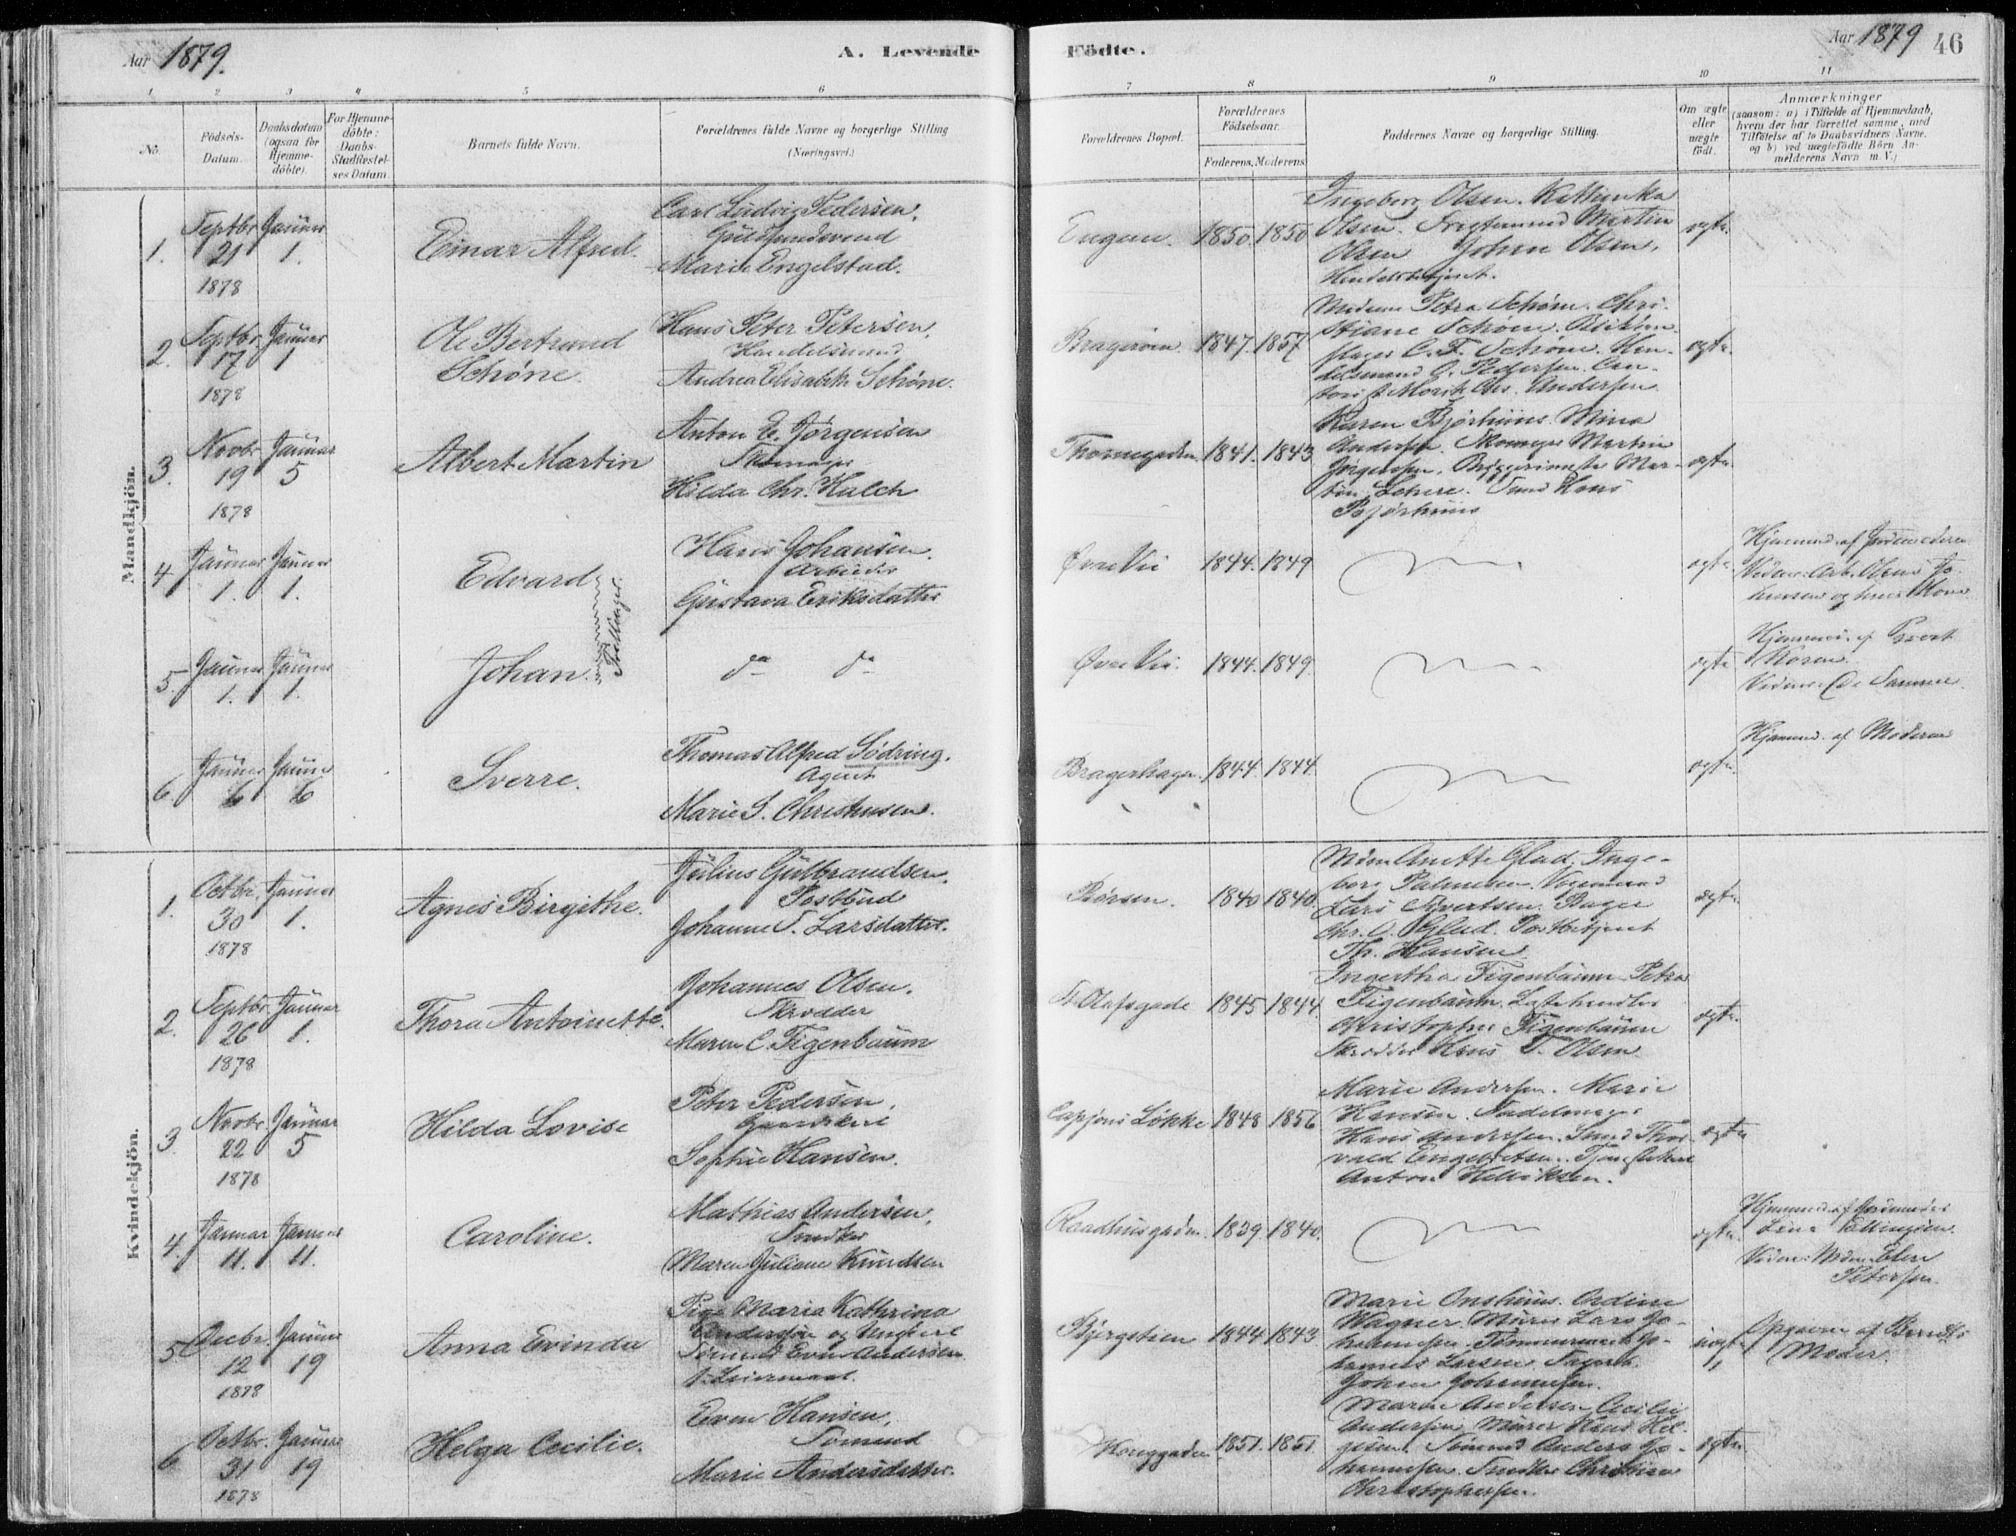 Aar 1879.
A. Levende Födte.
Aar 1879
46
1 2 3 4 5 6 7 8 9 10 11
No.
Födsels-Datum.
Daabsdatum (ogsaa for Hjemme-döbte).
For Hjemme-döbte: Daabs-Stadfæstel-ses Datum.
Barnets fulde Navn.
Forældrenes fulde Navne og borgerlige Stilling
(Næringsvei.)
Forældrenes Bopæl.
Forældrenes Födselsaar.
Faderens. Moderens.
Faddernes Navne og borgerlige Stilling.
Om ægte eller uægte födt.
Anmærkninger
(saasom: a) i Tilfælde af Hjemmedaab,
hvem der har forrettet samme, med
Tilföielse af to Daabsvidners Navne.
og b) ved uægtefödte Börn An-
melderens Navn m. V.)
Mandkjön.
1. Septbr. 21 1878
Januar 1.
Einar Alfred.
Carl Ludvig Pedersen,
Guldsmedsvend
Marie Engelstad.
Engen. 1850. 1850
Ingeborg Olsen. Kathinka
Olsen. Fragtemand Martin
Olsen Johan Olsen,
Handelsbetjent.
ægte.
2. Septbr. 17 1878
Januar 1
Ole Bertrand
Schøne.
Hans Peter Petersen,
Handelsmand
Andrea Elisabeth Schøne.
Bragerøen. 1847. 1857
Madame Petra Schøne. Chri-
stiane Schøne.
C. F. Schøne. Han-
delsmand O. Pedersen. Con-
torist Moritz Chr. Andersen
ægte.
3. Novbr. 19 1878
Januar 5
Albert Martin
Anton E. Jørgensen
Skomager
Hilda Chr. Kulch
Thornegaden. 1841. 1843
Karen Bjørhuus. Mina
Andersen. Skomager Martin
Jørgensen. Mar-
tin Hans
Bjørhuus
ægte.
4 Januar 1. Januar 1.
Edvard
Tvillinger
Hans Johansen.
Arbeider
Gustava Eriksdatter
Øvre Vei 1844. 1849
ægte
Hjemmed. af Jordemoderen
Vidner: Arb. Jo-
hansen og hans Kone.
5. Januar 1. Januar 1.
Johan.
do do
Øvre Vei. 1844. 1849.
ægte
Hjemmed. af
Vidner: De Samme.
6 Januar 6 Januar 6
Sverre.
Thomas Alfred Sødring.
Agent
Marie S. Christensen.
Bragerhagen. 1844. 1844.
ægte.
Hjemmed. af Moderen
Kvindekjön.
1. Octbr. 30 1878
Januar 1.
Agnes Birgithe.
Julius Gulbrandsen,
Postbud
Johanne T. Larsdatter.
Børsen. 1840 1840.
Mdm Anette Glad. Inge-
borg
Lars Sivertsen. Bager
Chr. O. Glad. Postbetjent
Th. Hansen.
ægte.
2. Septbr. 26 1878
Januar 1.
Thora Antoinette.
Johannes Olsen.
Skrædder
Maren C. Figenbaum
St. Olafsgade 1845 1844.
Figenbaum. Petra
Figenbaum.
Christopher Figenbaum
Skrædder Hans T. Olsen
ægte.
3. Novbr. 22 1878
Januar 5
Hilda Lovise
Peter Pedersen,
Sophie Hansen.
Cappjons Løkke 1848 1856
Marie Andersen. Marie
Hansen. Sadelmager
Hans Andersen. Smed Thor-
vald Engebretsen.
Anton Henriksen.
ægte
4. Januar 11. Januar 11.
Caroline.
Mathias Andersen,
Snedker
Maren Juliane Knudsen
Raadhusgaden. 1839. 1840.
ægte.
Hjemmed. af Jordemoder
Lina Ellingsen.
Vidner: Mdm Elen
Petersen.
5 Decbr. 12 1878
Januar 19
Anna Evinda
Pige Maria Kathrina
Andersen og Ungkarl
Sømand Even Andersen
1. Leiermaal.
Bjergstien 1844. 1843
Marie Onshuus. Ordine
Wagner. Murer Lars Jo-
hannesen. Tømmermand Jo-
hannes Larsen
Johan Johannesen.
uægte
Opgaven af Barnets
Moder.
6 Octbr. 31 1878
Januar 19
Helga Cecilie.
Even Hansen,
Sømand
Marie Andersdatter.
Konggaden. 1851. 1851.
Maren Andersen. Cecilie
Andersen. Murer Hans Hel-
gesen. Sømand Anders Jo-
hannesen. Snedker Christian
Christophersen.
ægte